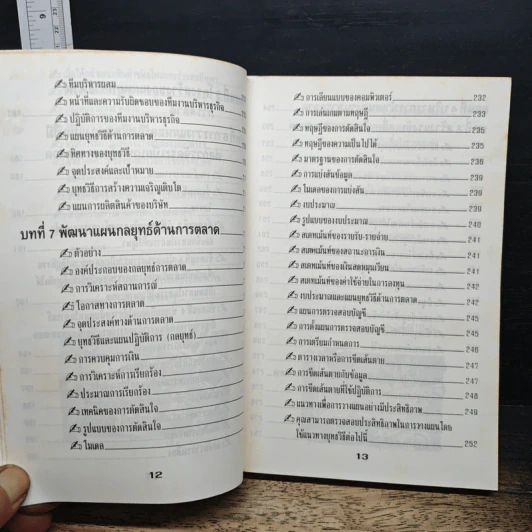 ทีมบริหารผสม
หน้าที่และความรับผิดชอบของทีมงานบริหารธุรกิจ
ปฏิบัติการของทีมงานบริหารธุรกิจ
แผนยุทธวิธีด้านการตลาด
ทิศทางของยุทธวิธี
จุดประสงค์และเป้าหมาย
ยุทธวิธีการสร้างความเจริญเติบโต
แผนการผลิตสินค้าของบริษัท
บทที่ 7 พัฒนาแผนกลยุทธ์ด้านการตลาด
ตัวอย่าง
องค์ประกอบของกลยุทธ์การตลาด
การวิเคราะห์สถานการณ์
โอกาสทางการตลาด
จุดประสงค์ทางด้านการตลาด
ยุทธวิธีและแผนปฏิบัติการ (กลยุทธ์)
การควบคุมการเงิน
การวิเคราะห์การเรียกร้อง
ประมาณการเรียกร้อง
เทคนิคของการตัดสินใจ
รูปแบบของการตัดสินใจ
โมเดล
12
การเลียนแบบของคอมพิวเตอร์ 232
การเล่นเกมตามทฤษฎี 233
ทฤษฎีของการตัดสินใจ 235
ทฤษฎีของความเป็นไปได้ 235
มาตรฐานของการตัดสินใจ
การแบ่งสันข้อมูล 239
โมเดลของการแบ่งสัน 239
งบประมาณ 239
รูปแบบของงบประมาณ 240
สเตทเม้นท์ของรายรับ-รายจ่าย 241
สเตทเม้นท์ของสถานะการเงิน 241
สเตทเม้นท์ของเงินสดหมุนเวียน 241
สเตทเม้นท์ของค่าใช้จ่ายในการลงทุน 242
งบประมาณและแผนยุทธวิธีด้านการตลาด 242
แผนการตรวจสอบบัญชี 245
การตั้งแผนการตรวจสอบบัญชี 245
การเตรียมกำหนดการ 246
ตารางเวลาหรือการขีดเส้นตาย 247
การขีดเส้นตายกับข้อมูล 247
การขีดเส้นตายที่ใช้ปฏิบัติการ 248
แนวทางเพื่อการวางแผนอย่างมีประสิทธิภาพ 249
คุณสามารถตรวจสอบประสิทธิภาพในการวางแผนโดย
ใช้แนวทางยุทธวิธีต่อไปนี้ 252
13